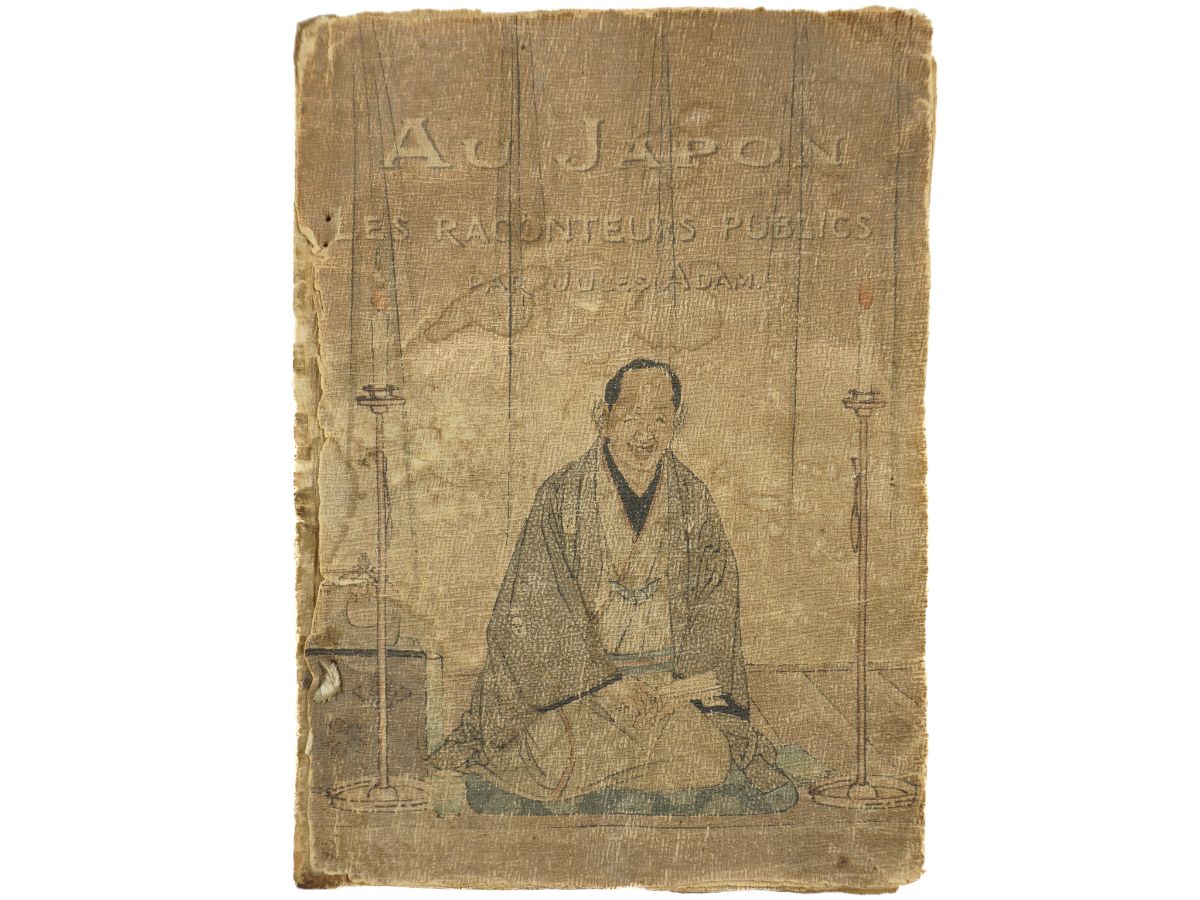 AU JAPON
LES RACONTEURS PUBLICS
PAR JULES ADAM.